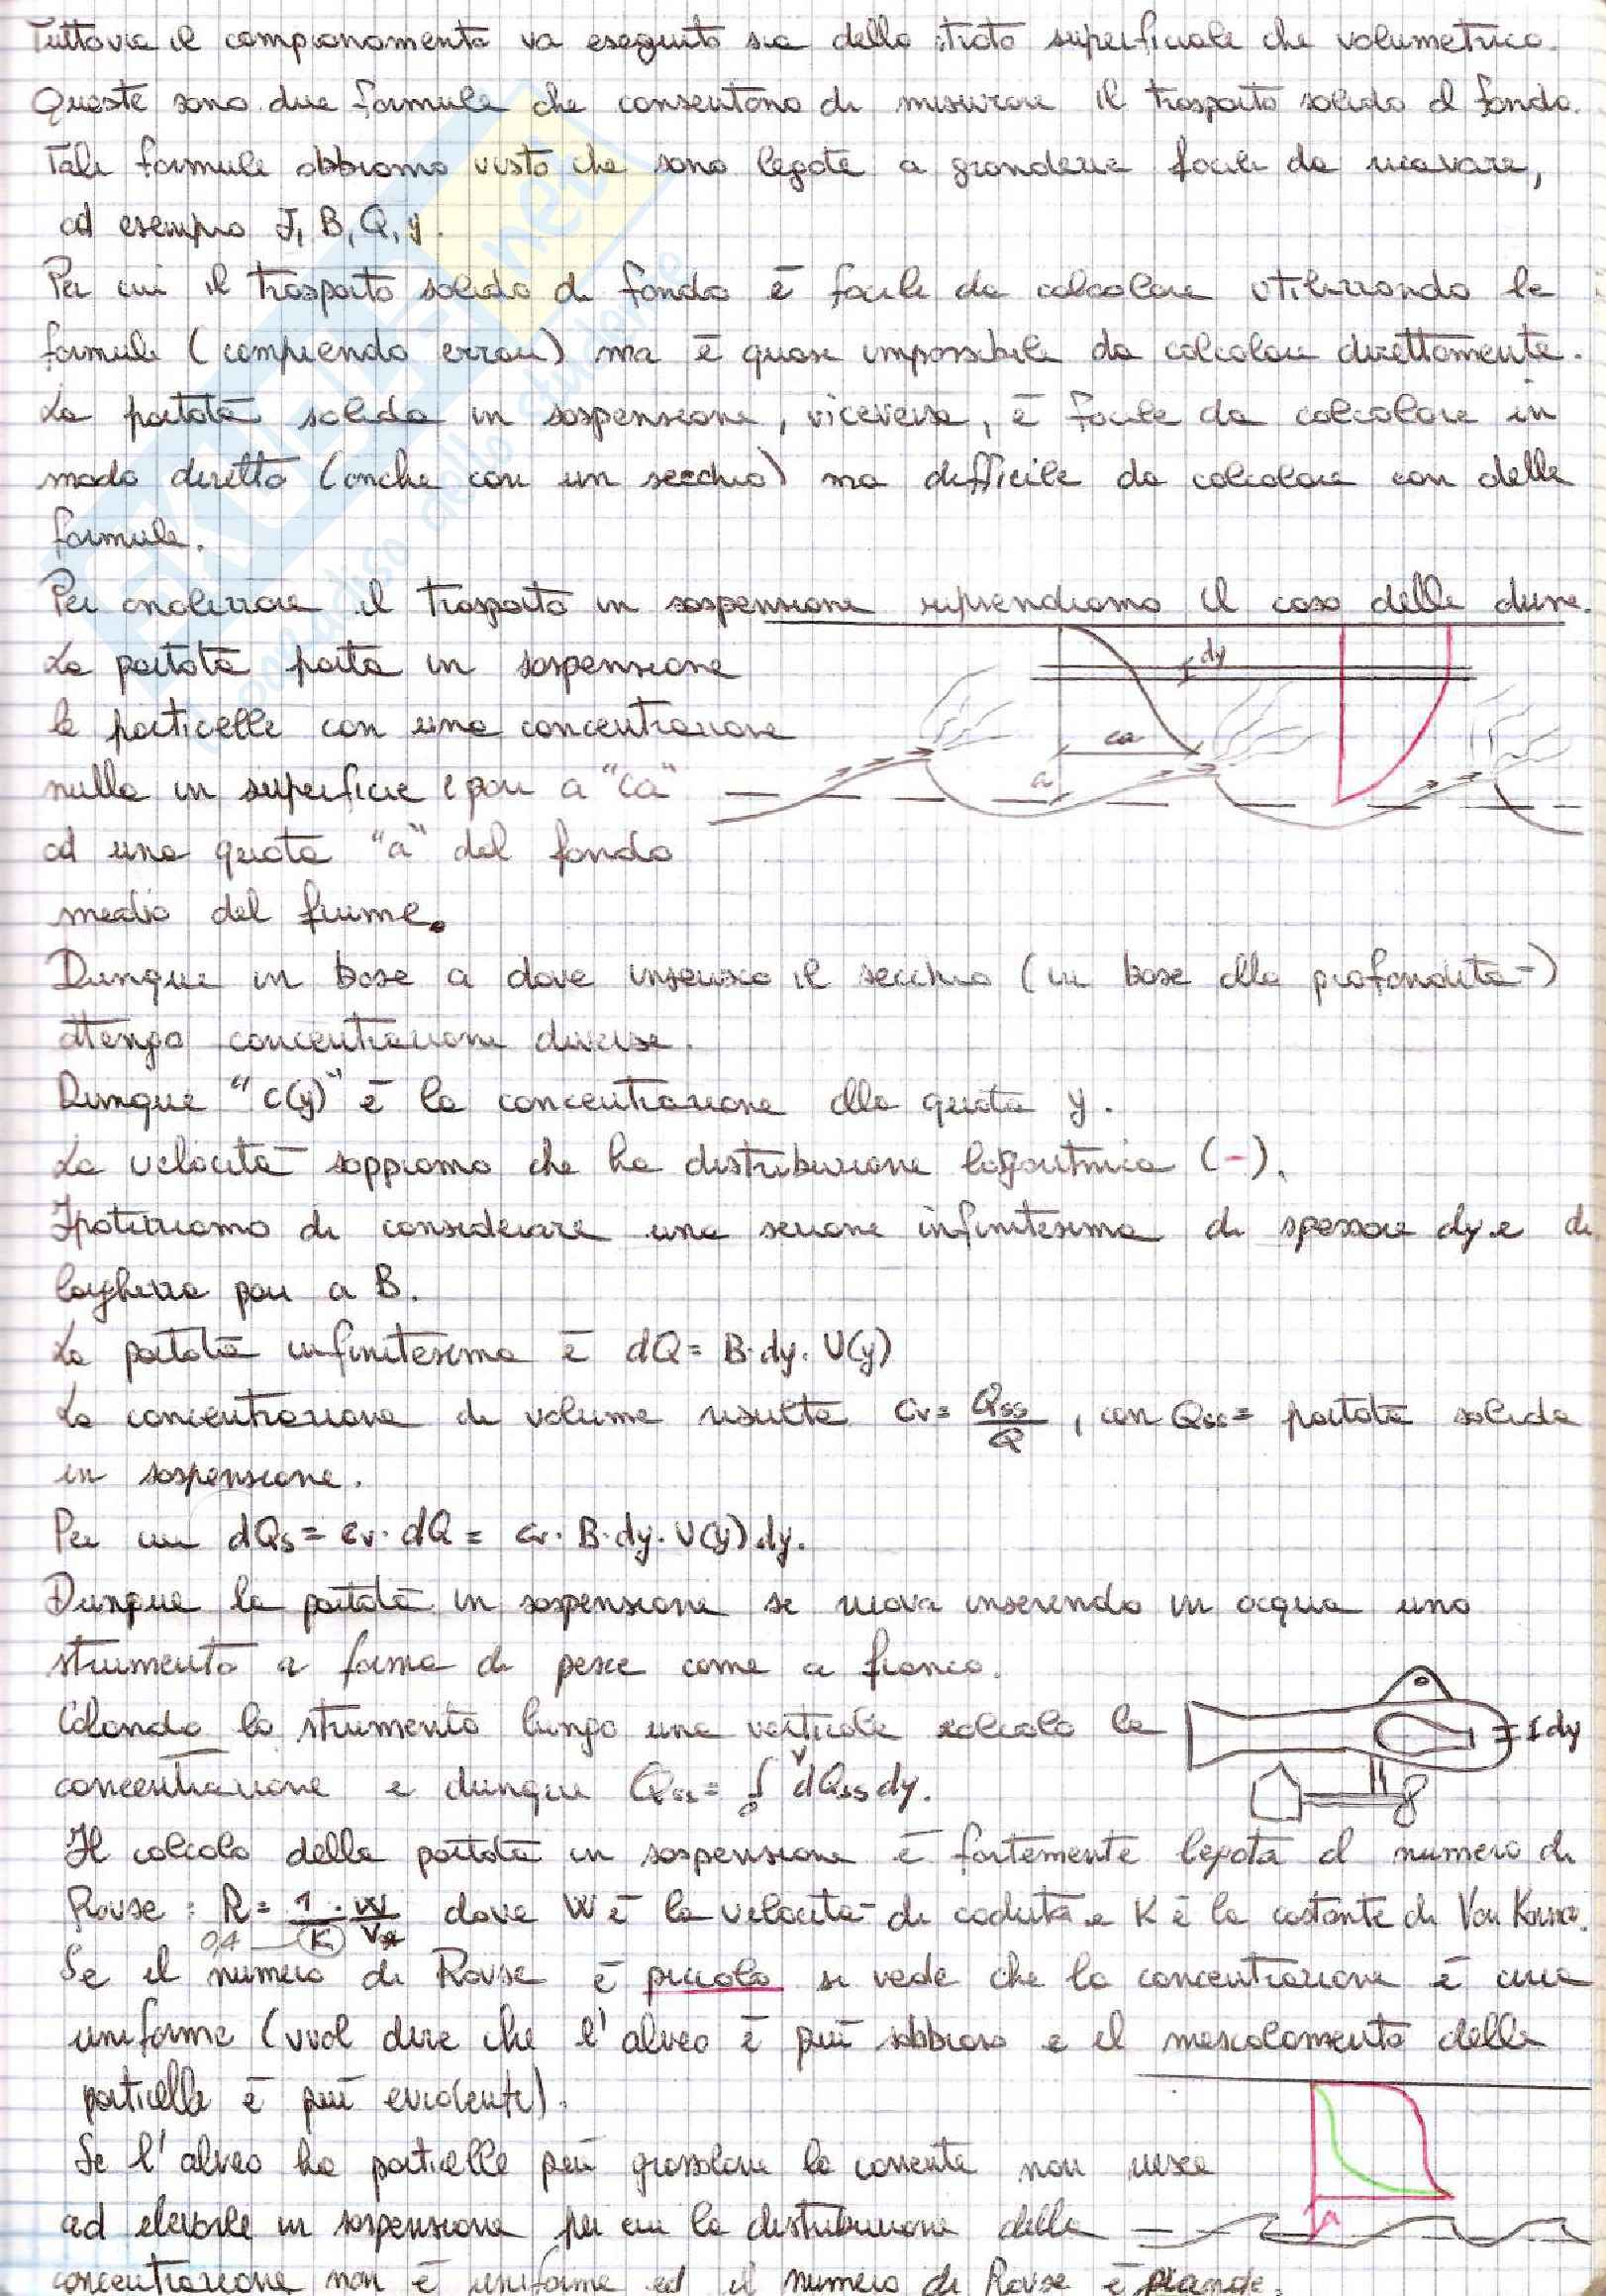 Tuttavia il campionamento va eseguito sia dello strato superficiale che volumetrico.
Queste sono due formule che consentono di misurare il trasporto solido al fondo.
Tali formule abbiamo visto che sono legate a grandezze facili da ricavare,
ad esempio J, B, Q, y.
Per cui il trasporto solido di fondo è facile da calcolare utilizzando le
formule (compiendo errori) ma è quasi impossibile da calcolare direttamente.
La portata solida in sospensione, viceversa, è facile da calcolare in
modo diretto (anche con un secchio) ma difficile da calcolare con delle
formule.
Per analizzare il trasporto in sospensione riprendiamo il caso delle dune.
La portata porta in sospensione
le particelle con una concentrazione
nulla in superficie e pari a "ca"
ad una quota "a" dal fondo
medio del fiume.
dy
ca
a
Dunque in base a dove inserisco il secchio (in base alla profondità)
ottengo concentrazioni diverse.
Dunque "c(y)" è la concentrazione alla quota y.
La velocità sappiamo che ha distribuzione logaritmica (-).
Ipotizziamo di considerare una sezione infinitesima di spessore dy e di
larghezza pari a B.
La portata infinitesima è dQ = B·dy·U(y)
La concentrazione di volume risulta cv = Qss/Q, con Qss = portata solida
in sospensione.
Per cui dQs = cv·dQ = cv·B·dy·U(y).dy.
Dunque la portata in sospensione si ricava inserendo in acqua uno
strumento a forma di pesce come a fianco.
Calando lo strumento lungo una verticale calcolo la
concentrazione e dunque Qss = ∫₀ʸ dQss dy.
dy
Il calcolo della portata in sospensione è fortemente legata al numero di
Rouse: R = 1/K · W/V* dove W è la velocità di caduta e K è la costante di Von Karman.
0,4
Se il numero di Rouse è piccolo si vede che la concentrazione è circa
uniforme (vuol dire che l'alveo è più sabbioso e il mescolamento delle
particelle è più evidente).
Se l'alveo ha particelle più grossolane la corrente non riesce
ad elevarle in sospensione per cui la distribuzione della
concentrazione non è uniforme ed il numero di Rouse è grande.
a